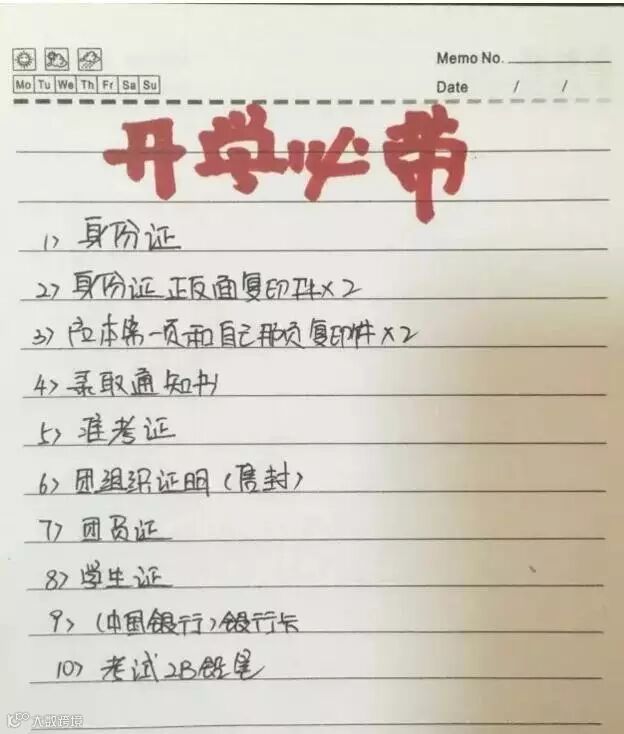 Memo No.
Mo Tu We Th Fr Sa Su
Date / /
开学必带
1) 身份证
2) 身份证正反面复印件×2
3) 户口本第一页和自己那页复印件×2
4) 录取通知书
5) 准考证
6) 团组织证明(信封)
7) 团员证
8) 学生证
9) (中国银行)银行卡
10) 考试2B铅笔
大数跨境